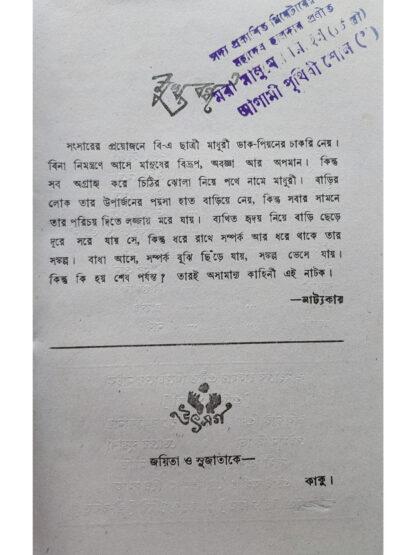 সদ্য প্রকাশিত থিয়েটারের
মহাদেব হালদার প্রণীত
মরা মানুষ
আগামী পৃথিবী শোন (২)
সংসারের প্রয়োজনে বি-এ ছাত্রী মাধুরী ডাক-পিয়নের চাকরি নেয়।
বিনা নিমন্ত্রণে আসে মানুষের বিদ্রূপ, অবজ্ঞা আর অপমান। কিন্তু
সব অগ্রাহ্য করে চিঠির ঝোলা নিয়ে পথে নামে মাধুরী। বাড়ির
লোক তার উপার্জনের পয়সা হাত বাড়িয়ে নেয়, কিন্তু সবার সামনে
তার পরিচয় দিতে লজ্জায় মরে যায়। ব্যথিত হৃদয় নিয়ে বাড়ি ছেড়ে
দূরে সরে যায় সে, কিন্তু ধরে রাখে সম্পর্ক আর ধরে থাকে তার
সঙ্কল্প। বাধা আসে, সম্পর্ক বুঝি ছিঁড়ে যায়, সঙ্কল্প ভেসে যায়।
কিন্তু কি হয় শেষ পর্যন্ত? তারই অসামান্য কাহিনী এই নাটক।
—নাট্যকার
উৎসর্গ
জয়িতা ও সুজাতাকে—
কাকু।